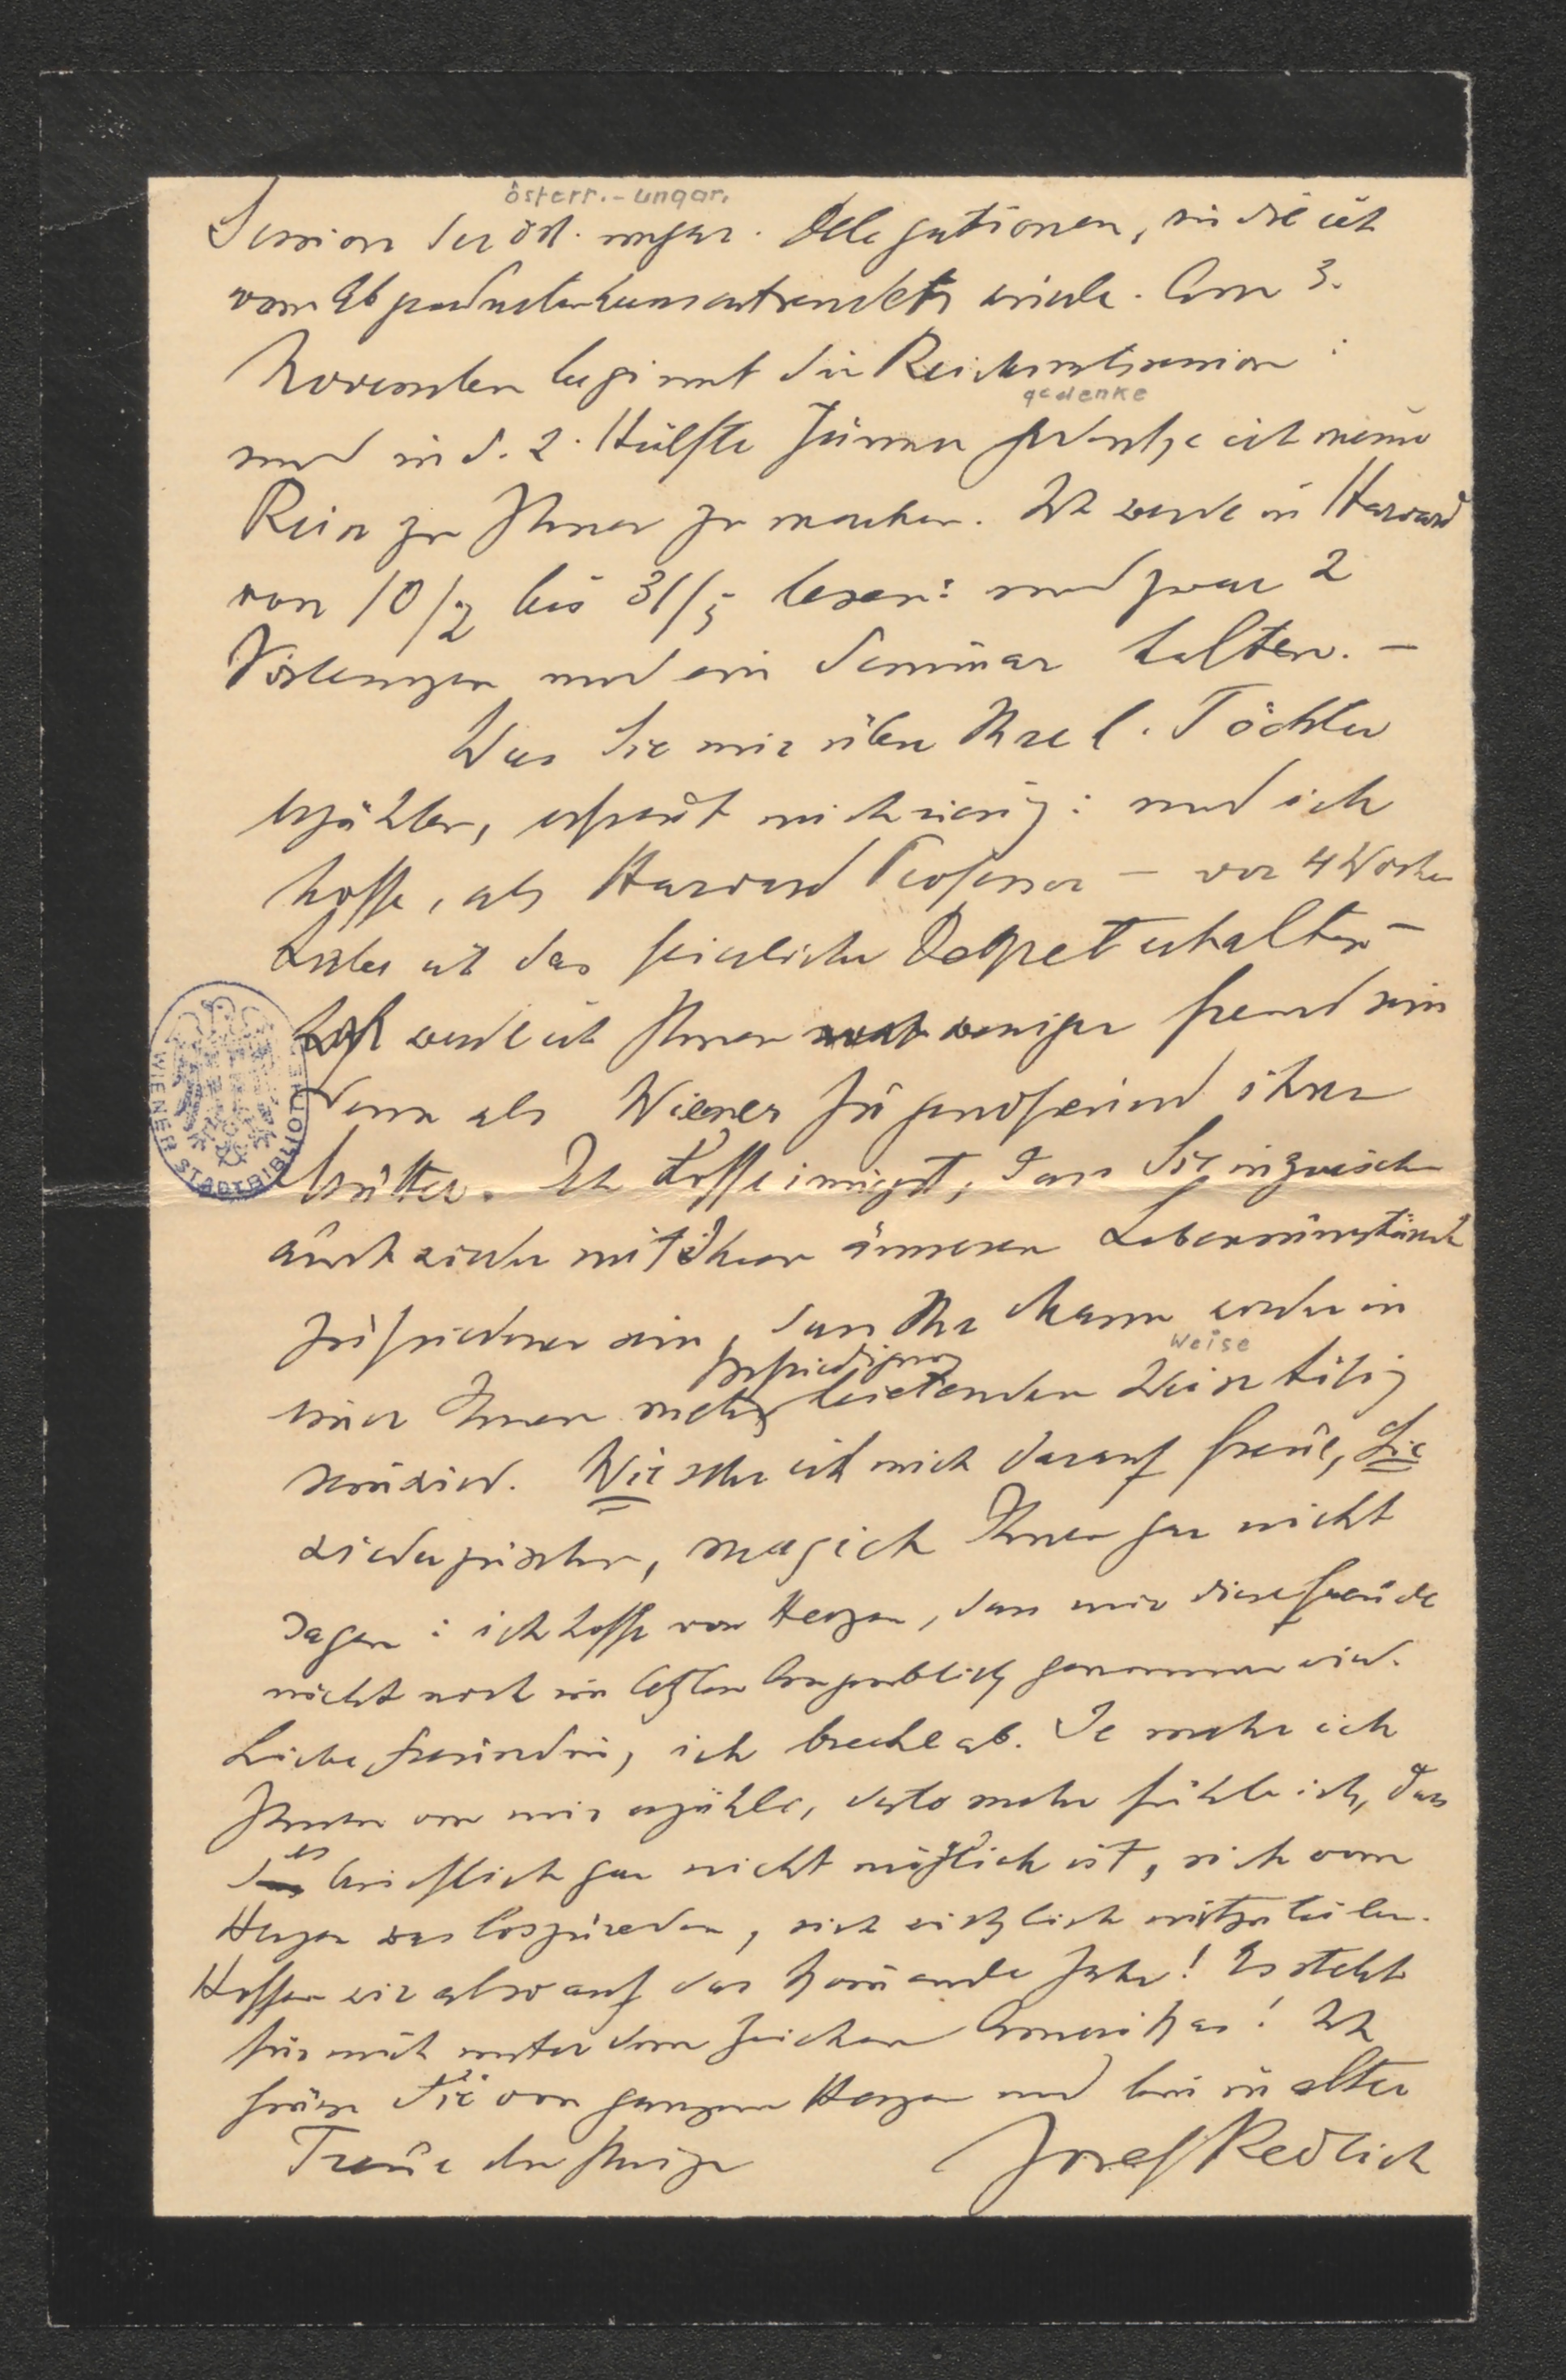 österr.-ungar.
Session der öst. ungar. Delegationen, in die ich
vom Abgeordnetenhaus entsendet wurde. Am 3.
November beginnt die Reichsratssession:
gedenke
und in d. 2. Hälfte Jänner gedenke ich meine
Reise zu Ihnen zu machen. Ich werde in Harvard
von 10/2 bis 31/5 lesen: und zwar 2
Vorlesungen und ein Seminar halten. –
Was Sie mir über Ihre l. Töchter
erzählen, erfreut mich riesig: und ich
hoffe, als Harvard Professor – vor 4 Wochen
habe ich das feierliche Dekret erhalten –
werde ich Ihnen weniger fremd sein
denn als Wiener Jugendfreund ihrer
Mutter. Ich hoffe innigst, dass Sie inzwischen
auch wieder mit Ihren äusseren Lebensumständen
zufriedener sein, dass Ihr Mann wieder in
Weise
befriedigung
einer Ihnen mehr bietenden Weise tätig
sein wird. Wie sehr ich mich darauf freue, Sie
wiederzusehen, mag ich Ihnen gar nicht
sagen: ich hoffe von Herzen, dass mir diese Freude
nicht noch im letzten Augenblick genommen wird.
Liebe Freundin, ich breche ab. Je mehr ich
Ihnen von mir erzähle, desto mehr fühle ich, dass
es
brieflich gar nicht möglich ist, sich vom
Herzen was loszureden, sich wirklich mitzuteilen.
Hoffen wir also auf das kommende Jahr! Es steht
für mich unter dem Zeichen Amerikas! Ich
grüsse Sie von ganzem Herzen und bin in alter
Treue der Ihrige
Josef Redlich
WIENER STADTBIBLIOTHEK